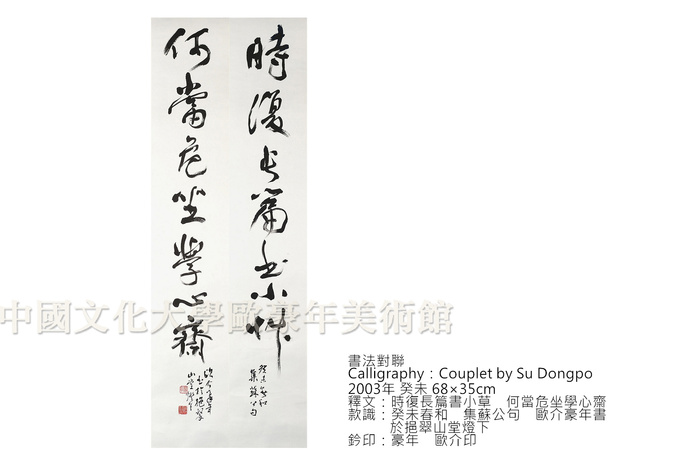 時復長篇書小草
癸未春和
集蘇公句
何當危坐學心齋
歐介豪年書於挹翠
山堂燈下
中國文化大學歐豪年美術館
書法對聯
Calligraphy：Couplet by Su Dongpo
2003年 癸未 68×35cm
釋文：時復長篇書小草　何當危坐學心齋
款識：癸未春和　集蘇公句　歐介豪年書
於挹翠山堂燈下
鈐印：豪年　歐介印